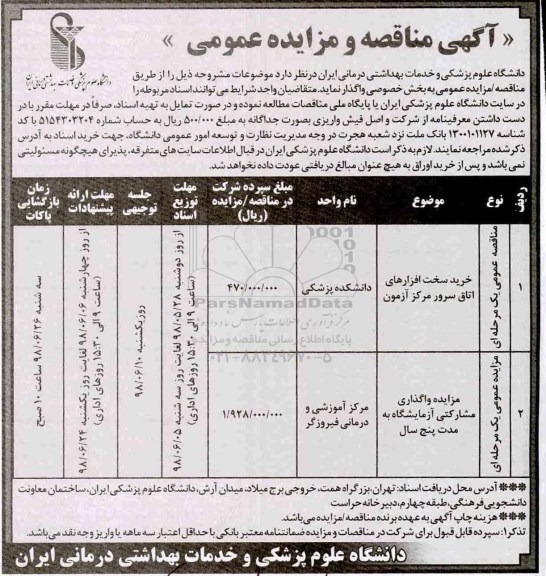 « آگهی مناقصه و مزایده عمومی »
دانشگاه علوم پزشکی و خدمات بهداشتی درمانی ایران
دانشگاه علوم پزشکی و خدمات بهداشتی درمانی ایران در نظر دارد موضوعات مشروحه ذیل را از طریق
مناقصه/مزایده عمومی به بخش خصوصی واگذار نماید. متقاضیان واجد شرایط می توانند اسناد مربوطه را
در سایت دانشگاه علوم پزشکی ایران یا پایگاه ملی مناقصات مطالعه نموده و در صورت تمایل به تهیه اسناد، صرفاً در مهلت مقرر با در
دست داشتن معرفینامه از شرکت و اصل فیش واریزی بصورت جداگانه به مبلغ ۵۰۰/۰۰۰ ریال به حساب شماره ۵۱۵۴۳۰۳۲۰۴ با کد
شناسه ۱۳۰۰۱۰۱۱۲۷ بانک ملت نزد شعبه هجرت در وجه مدیریت نظارت و توسعه امور عمومی دانشگاه، جهت خرید اسناد به آدرس
ذکر شده مراجعه نمایند. لازم به ذکر است دانشگاه علوم پزشکی ایران در قبال اطلاعات سایت های متفرقه، پذیرای هیچگونه مسئولیتی
نمی باشد و پس از خرید اوراق به هیچ عنوان مبالغ دریافتی عودت داده نخواهد شد.
ردیف
نوع
موضوع
نام واحد
مبلغ سپرده شرکت
در مناقصه/مزایده
(ریال)
مهلت
توزیع
اسناد
جلسه
توجیهی
مهلت ارائه
پیشنهادات
زمان
بازگشایی
پاکات
۱
مناقصه عمومی یک مرحله ای
خرید سخت افزارهای
اتاق سرور مرکز آزمون
دانشکده پزشکی
۴۷۰/۰۰۰/۰۰۰
از روز دوشنبه ۹۸/۰۵/۲۸ لغایت روز سه شنبه ۹۸/۰۶/۰۵
(ساعت ۹ الی ۱۵:۳۰ روزهای اداری)
روز یکشنبه ۹۸/۰۶/۱۰
از روز چهارشنبه ۹۸/۰۶/۰۶ لغایت روز یکشنبه ۹۸/۰۶/۲۴
(ساعت ۹ الی ۱۵:۳۰ روزهای اداری)
سه شنبه ۹۸/۰۶/۲۶ ساعت ۱۰ صبح
۲
مزایده عمومی یک مرحله ای
مزایده واگذاری
مشارکتی آزمایشگاه به
مدت پنج سال
مرکز آموزشی و
درمانی فیروزگر
۱/۹۲۸/۰۰۰/۰۰۰
ParsNamadData
پایگاه اطلاع رسانی مناقصه و مزایده
۰۲۱-۸۸۳۴۹۶۷۰-۵
*** آدرس محل دریافت اسناد: تهران، بزرگراه همت، خروجی برج میلاد، میدان آرش، دانشگاه علوم پزشکی ایران، ساختمان معاونت
دانشجویی فرهنگی، طبقه چهارم، دبیرخانه حراست
*** هزینه چاپ آگهی به عهده برنده مناقصه/مزایده می باشد.
تذکر: سپرده قابل قبول برای شرکت در مناقصات و مزایده ضمانتنامه معتبر بانکی با حداقل اعتبار سه ماهه یا واریز وجه نقد می باشد.
دانشگاه علوم پزشکی و خدمات بهداشتی درمانی ایران